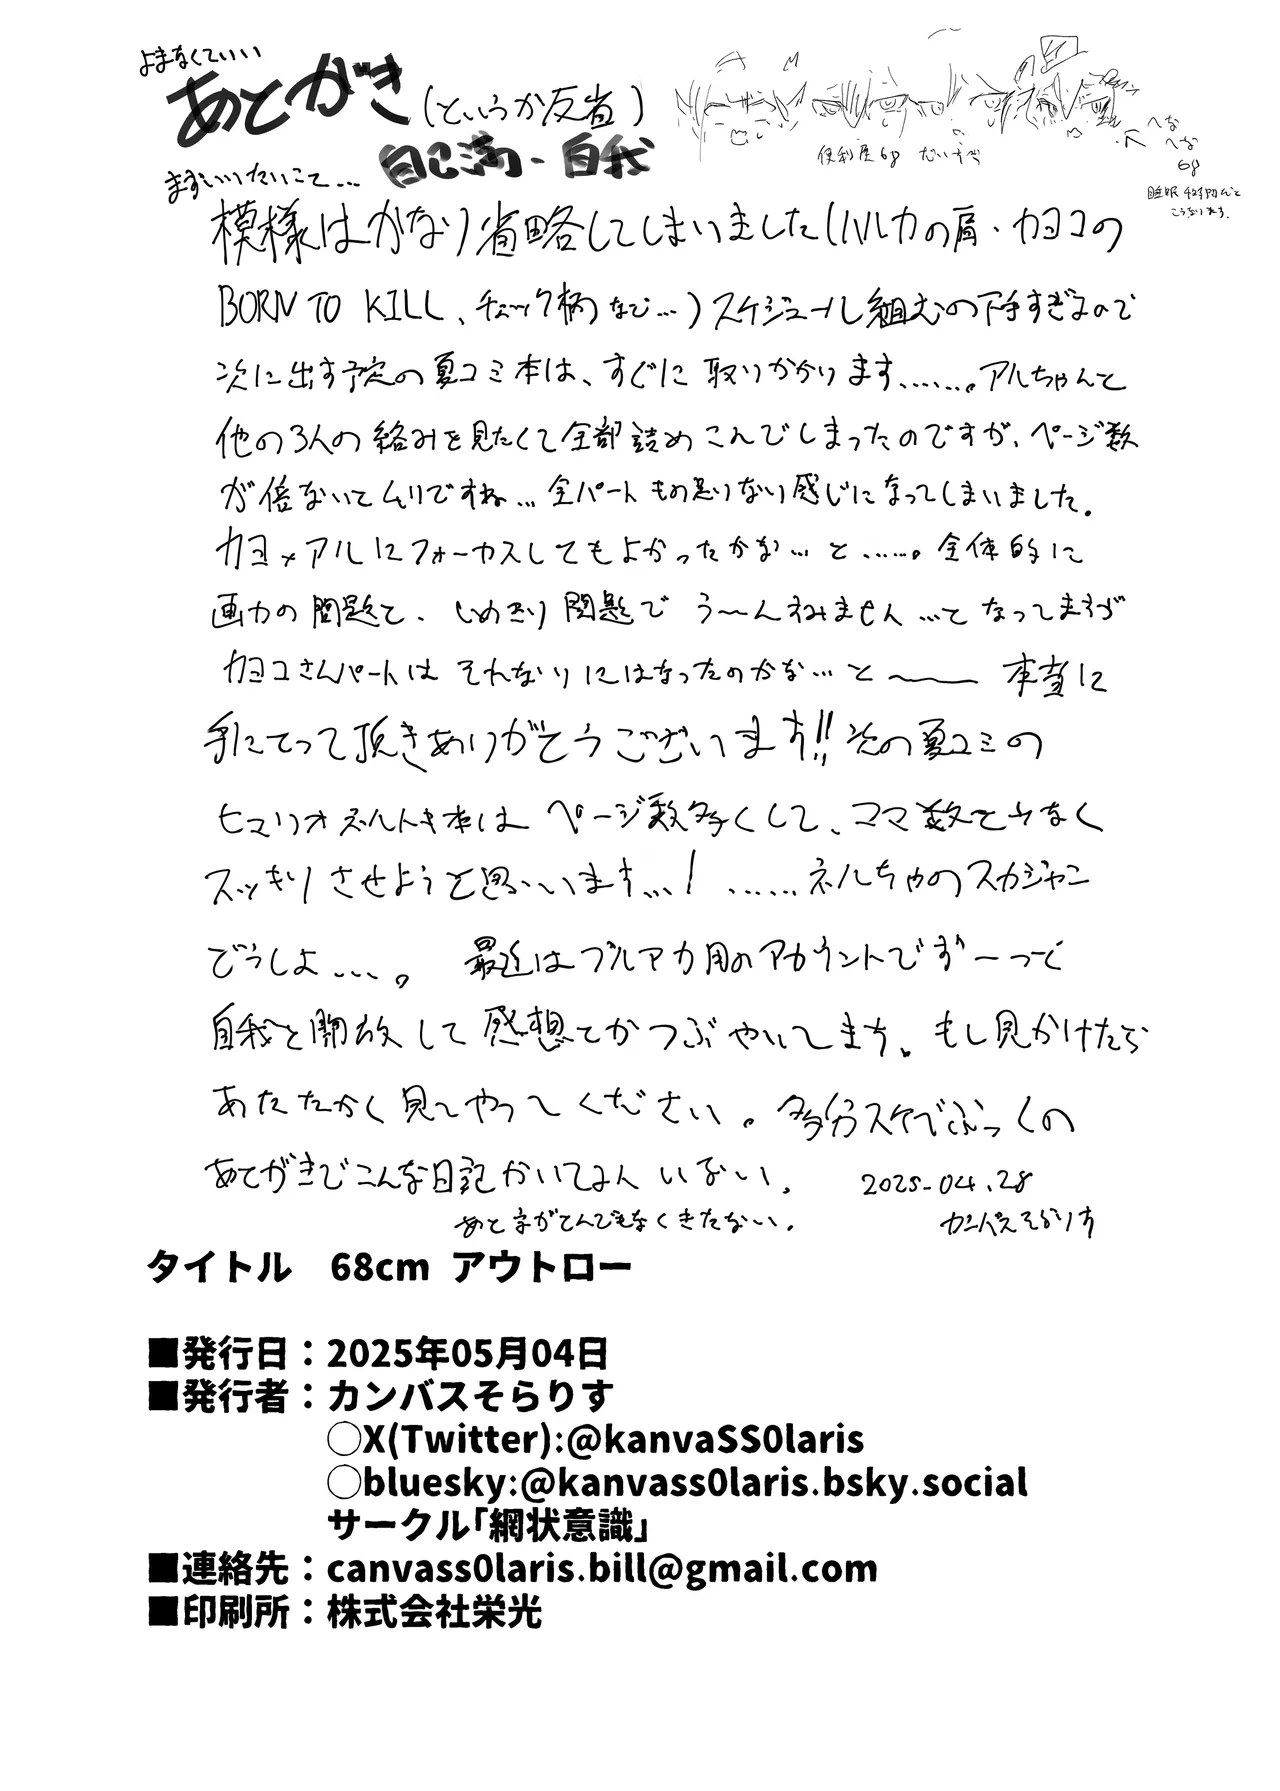 よまなくていい
あとがき(というか反省)
自己満・自我
便利屋68 だいすき
へな
へな
68
睡眠4時間だと
こうなります。
まずいいたいこと...
模様はかなり省略してしまいました(ハルカの肩・カヨコの
BORN TO KILL、チェック柄など...)スケジュール組むの下手すぎるので
次に出す予定の夏コミ本は、すぐに取りかかります......。アルちゃんと
他の3人の絡みを見たくて全部詰めこんでしまったのですが、ページ数
が倍ないとムリですね...全パートもの足りない感じになってしまいました。
カヨ×アルにフォーカスしてもよかったかな...と......。全体的に
画力の問題と、しめきり問題でう〜んすみません...となってますが
カヨコさんパートはそれなりにはなったのかな...と〜〜 本当に
手にとって頂きありがとうございます!!次の夏コミの
ヒマリオネルトキ本はページ数多くして、コマ数を少なく
スッキリさせようと思います...!......ネルちゃのスカジャン
どうしよ....。 最近はブルアカ用のアカウントでずーっと
自我を開放して感想とかつぶやいてます。もし見かけたら
あたたかく見てやってください。多分スケべぶっくの
あとがきでこんな日記かいてる人いない。 2025.04.28
あと字がとんでもなくきたない。 カンバスそらりす
タイトル 68cm アウトロー
■発行日：2025年05月04日
■発行者：カンバスそらりす
○X(Twitter):@kanvaSS0laris
○bluesky:@kanvass0laris.bsky.social
サークル「網状意識」
■連絡先：canvass0laris.bill@gmail.com
■印刷所：株式会社栄光